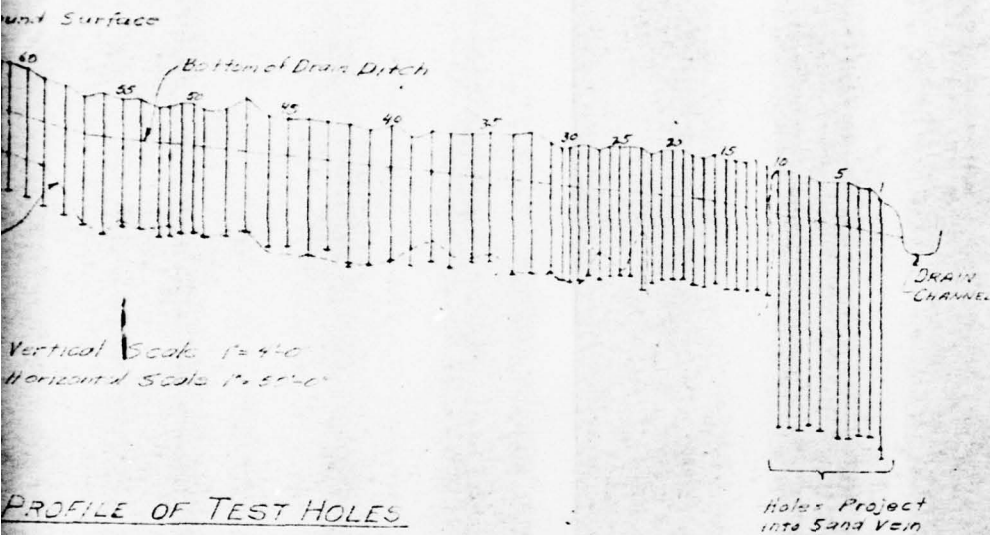 und Surface
60
Bottom of Drain Ditch
55
50
45
40
35
30
25
20
15
10
5
1
DRAIN
CHANNEL
Vertical Scale 1"=4'-0"
Horizontal Scale
PROFILE OF TEST HOLES
Holes Project
into Sand Vein